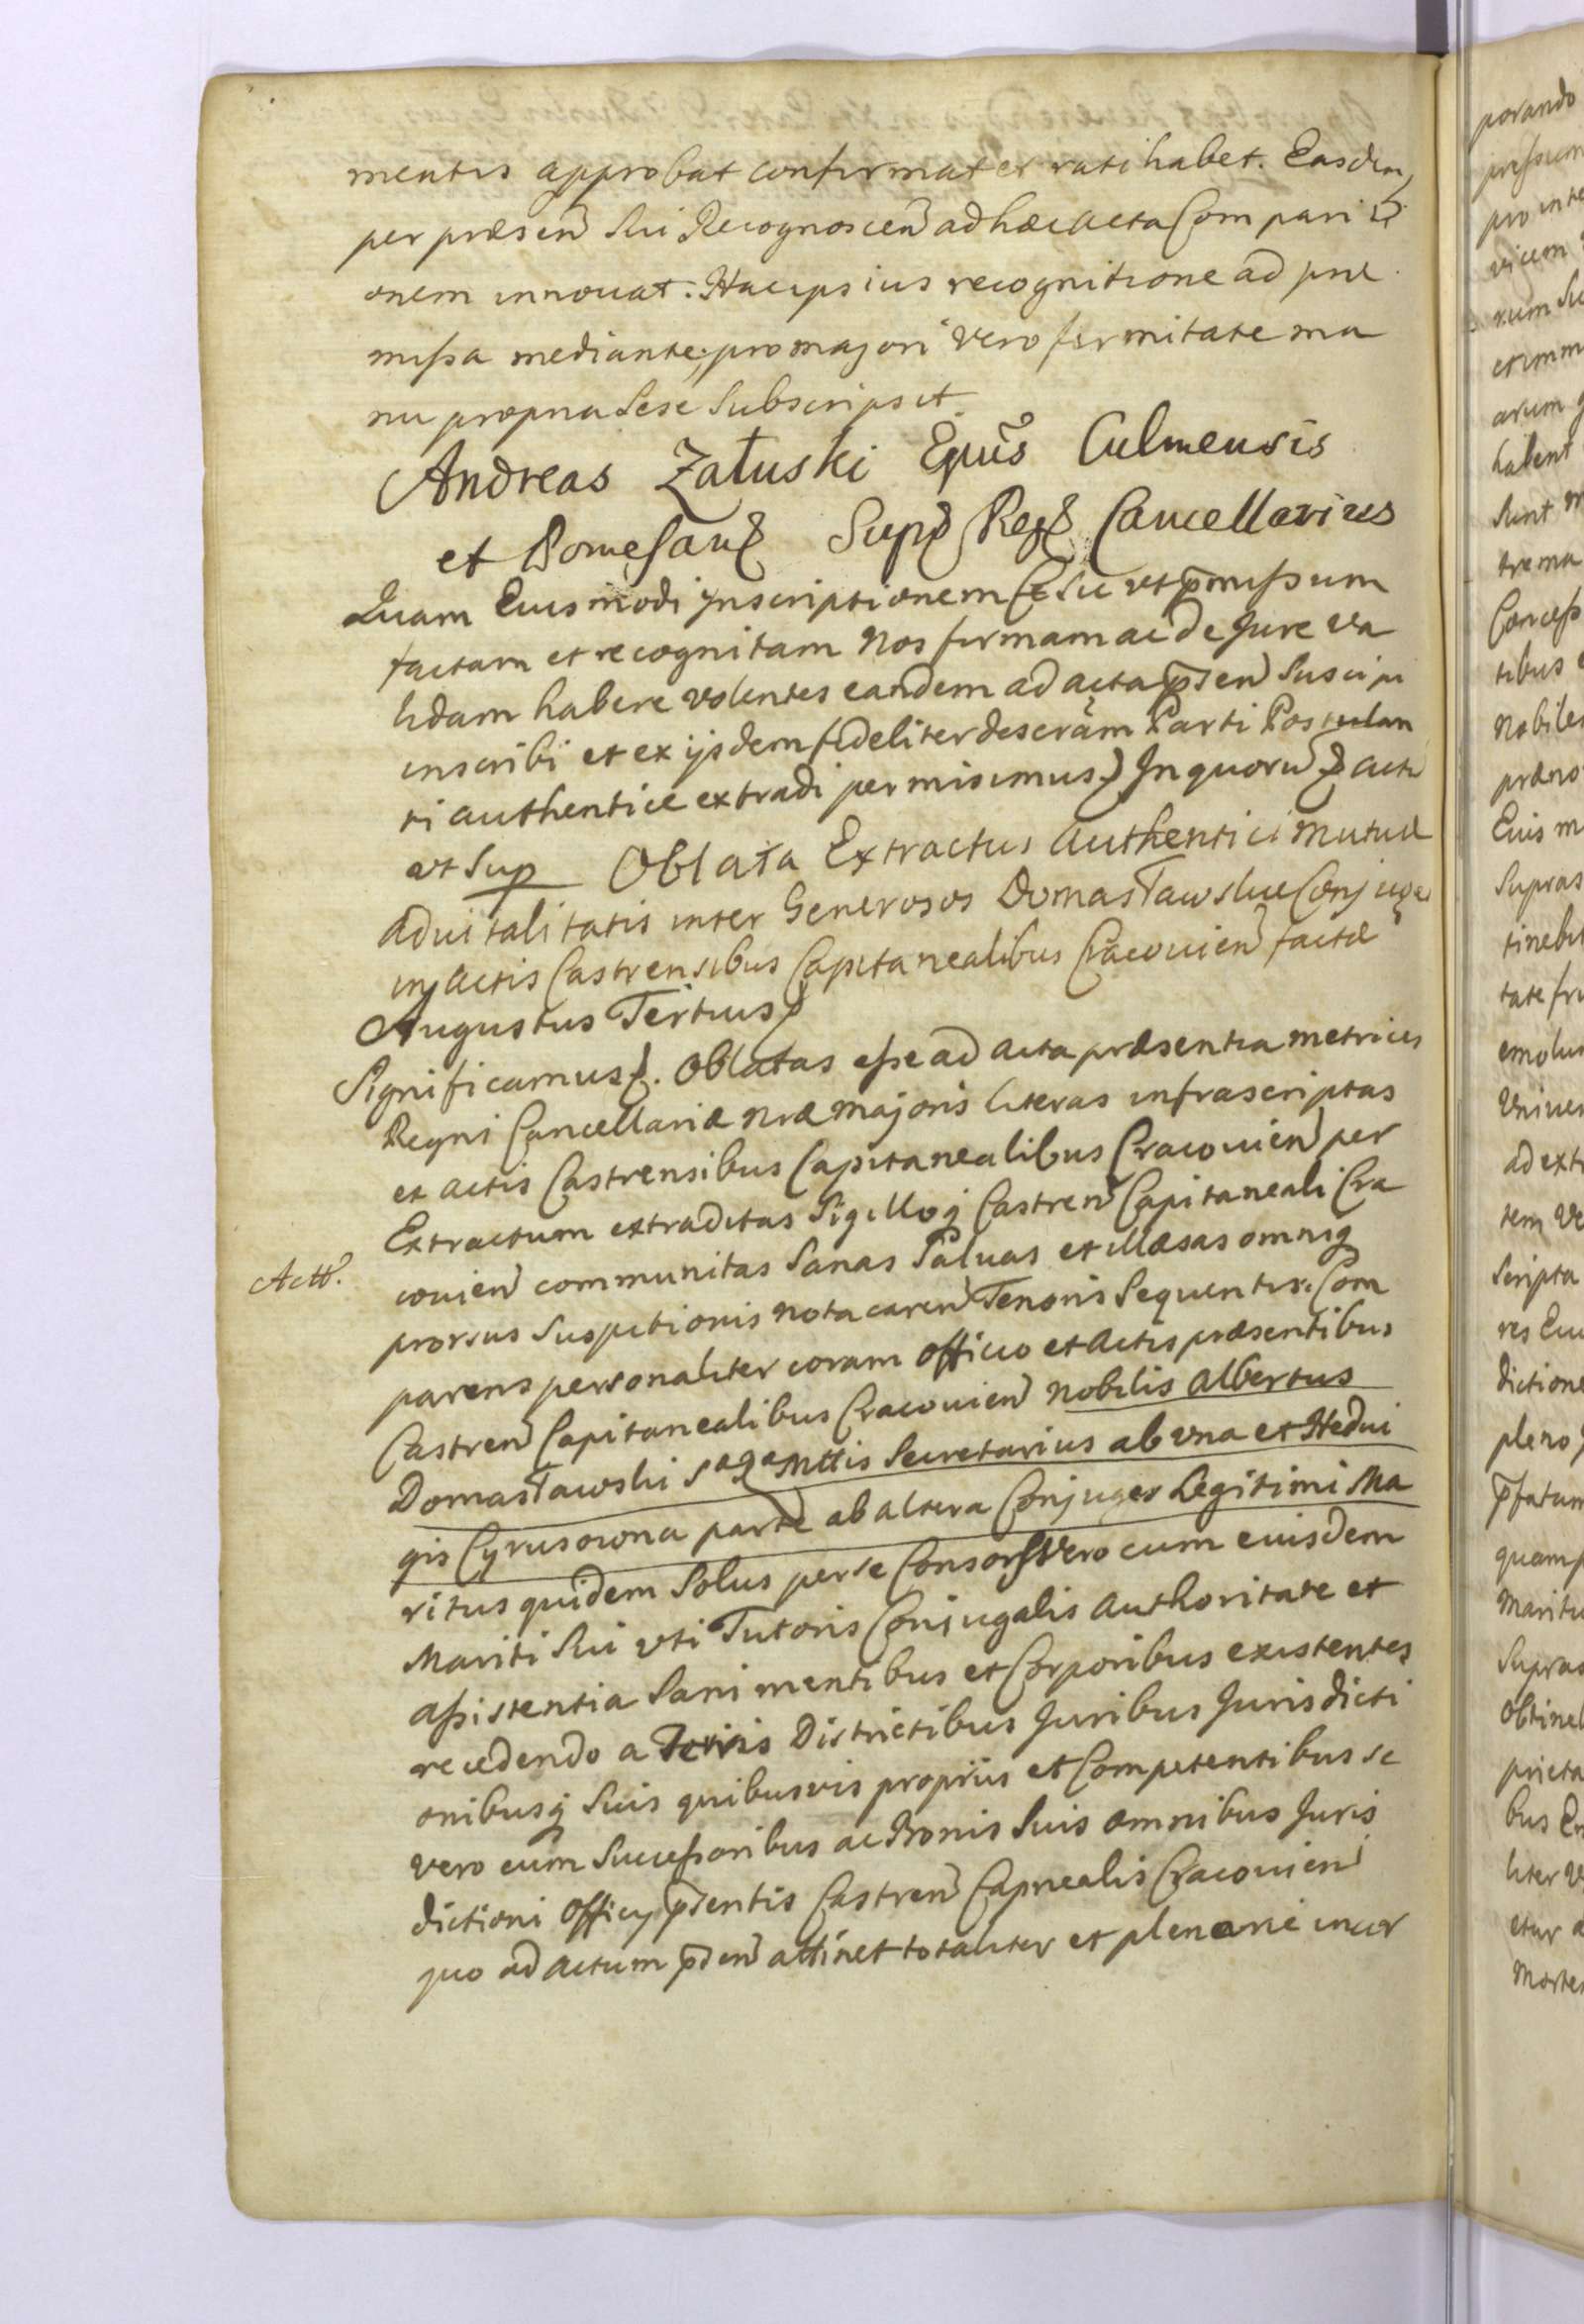 mentis approbat confirmat et ratihabet. Easdem
per præsen Sui Recognoscen ad hæc acta Compariti
onem innouat. Hac ipsius recognitione ad præ
missa mediante, pro majori vero firmitate ma
nu propria Sese Subscripsit
Andreas Załuski Epus Culmensis
et Pomesan Supr Reg Cancellarius
Quam Eiusmodi Inscriptionem Sic vt pmissum
factam et recognitam Nos firmam ac de Jure va
lidam habere volentes eandem ad acta pnsen Suscipi
inscribi et ex ijsdem fideliter descram Parti Postulan
ti authentice extradi permisimus Jn quoru actu
vt Sup Oblata Extractus authentici mutuæ
aduitalitatis inter Generosos Domasławskie Conjuges
in actis Castrensibus Capitanealibus Cracouien factæ
Augustus Tertius
Significamus. Oblatas esse ad acta præsentia metrices
Regni Cancellariæ nræ majoris literas infrascriptas
ex actis Castrensibus Capitanealibus Cracouien per
Extractum extraditas Sigilloq Castren Capitaneali Cra
Actt.
couien communitas Sanas Saluas et illæsas omniq
prorsus Suspitionis nota caren Tenoris Sequentis. Com
parens personaliter coram officio et actis præsentibus
Castren Capitanealibus Cracouien nobilis Albertus
Domasławski Sae Rae Mttis Secretarius ab vna et Hedui
gis Cyrusowna parte ab altera Conjuges Legitimi Ma
ritus quidem Solus per se Consors Vero cum eiusdem
Mariti Sui vti Tutoris Conjugalis Authoritate et
assistentia Sani mentibus et Corporibus existentes
recedendo a Terris Districtibus Juribus Jurisdicti
onibusq Suis quibusvis proprijs et Competentibus se
vero cum Successoribus ac Bonis Suis omnibus Juris
dictioni Officy pnsentis Castren Capnealis Cracouien
quo ad actum pnsen attinet totaliter et plenarie incor